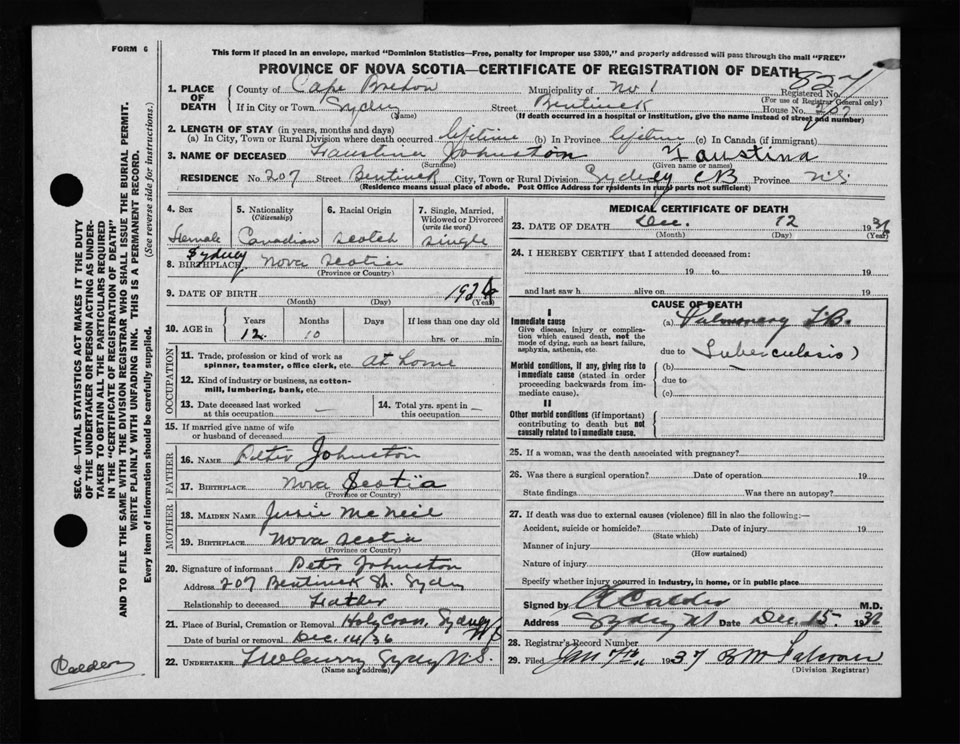 FORM 6
This form if placed in an envelope, marked "Dominion Statistics—Free, penalty for improper use $300," and properly addressed will pass through the mail "FREE"
PROVINCE OF NOVA SCOTIA—CERTIFICATE OF REGISTRATION OF DEATH
1. PLACE OF DEATH
County of Cape Breton Municipality of No 1 Registered No.
(For use of Registrar General only)
If in City or Town Sydney Street Bentinck House No. 207
(Name) (If death occurred in a hospital or institution, give the name instead of street and number)
2. LENGTH OF STAY (in years, months and days)
(a) In City, Town or Rural Division where death occurred lifetime (b) In Province lifetime (c) In Canada (if immigrant)
3. NAME OF DECEASED Faustina Johnston Faustina
(Surname) (Given name or names)
RESIDENCE No. 207 Street Bentinck City, Town or Rural Division Sydney CB Province N.S.
(Residence means usual place of abode. Post Office Address for residents in rural parts not sufficient)
4. Sex Female
5. Nationality (Citizenship) Canadian
6. Racial Origin Scotch
7. Single, Married, Widowed or Divorced (write the word) Single
8. BIRTHPLACE Sydney Nova Scotia
(Province or Country)
9. DATE OF BIRTH 192
(Month) (Day) (Year)
10. AGE in Years Months Days If less than one day old
12 10 hrs. or min.
OCCUPATION
11. Trade, profession or kind of work as spinner, teamster, office clerk, etc. At Home
12. Kind of industry or business, as cotton-mill, lumbering, bank, etc.
13. Date deceased last worked at this occupation —
14. Total yrs. spent in this occupation —
15. If married give name of wife or husband of deceased
FATHER
16. NAME Peter Johnston
17. BIRTHPLACE Nova Scotia
(Province or Country)
MOTHER
18. MAIDEN NAME Jessie McNeil
19. BIRTHPLACE Nova Scotia
(Province or Country)
20. Signature of informant Peter Johnston
Address 207 Bentinck St. Sydney
Relationship to deceased Father
21. Place of Burial, Cremation or Removal Holy Cross, Sydney
Date of burial or removal Dec. 14/36
22. UNDERTAKER Sydney N.S.
(Name and address)
MEDICAL CERTIFICATE OF DEATH
23. DATE OF DEATH Dec. 12 1936
(Month) (Day) (Year)
24. I HEREBY CERTIFY that I attended deceased from:
19 to 19
and last saw h alive on 19
CAUSE OF DEATH
I
Immediate cause
Give disease, injury or complication which caused death, not the mode of dying, such as heart failure, asphyxia, asthenia, etc.
(a) Pulmonary TB.
due to Tuberculosis
Morbid conditions, if any, giving rise to immediate cause (stated in order proceeding backwards from immediate cause)
(b)
due to
(c)
II
Other morbid conditions (if important) contributing to death but not causally related to immediate cause.
25. If a woman, was the death associated with pregnancy?
26. Was there a surgical operation? Date of operation 19
State findings Was there an autopsy?
27. If death was due to external causes (violence) fill in also the following:—
Accident, suicide or homicide? Date of injury 19
(State which)
Manner of injury
(How sustained)
Nature of injury
Specify whether injury occurred in industry, in home, or in public place
Signed by Calder M.D.
Address Sydney Date Dec 15 1936
28. Registrar's Record Number
29. Filed Jan 1937
(Division Registrar)
SEC. 46—VITAL STATISTICS ACT MAKES IT THE DUTY
OF THE UNDERTAKER OR PERSON ACTING AS UNDER-
TAKER TO OBTAIN ALL THE PARTICULARS REQUIRED
IN THE "CERTIFICATE OF REGISTRATION OF DEATH"
AND TO FILE THE SAME WITH THE DIVISION REGISTRAR WHO SHALL ISSUE THE BURIAL PERMIT.
WRITE PLAINLY WITH UNFADING INK. THIS IS A PERMANENT RECORD.
Every item of information should be carefully supplied. (See reverse side for instructions.)